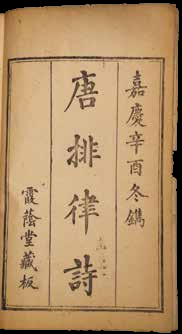 嘉慶辛酉冬鐫
唐排律詩
霞蔭堂藏板